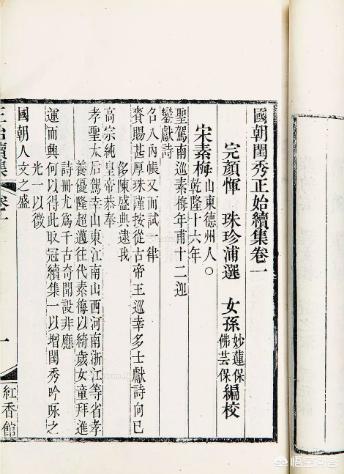 國朝閨秀正始續集卷一
完顏惲 珠珍浦選 女孫 妙蓮保 佛芸保 編校
宋素梅 山東德州人○ 乾隆十六年
聖駕南巡素梅年甫十二迎
鑾獻詩
名入內帳又面試一律
賚賜甚厚珠謹按從古帝王巡幸多士獻詩何已
侈陳盛典逮我
高宗純皇帝恭奉
孝聖太后駕幸山東江南山西河南浙江等省孝
養優隆超邁往代素梅以綺歲女童拜進
詩冊尤為千古奇聞設非應
運而興何以得此取冠續集一以增閨秀吟咏之
光一以徵
國朝人文之盛
正始續集 卷一
一
紅香館